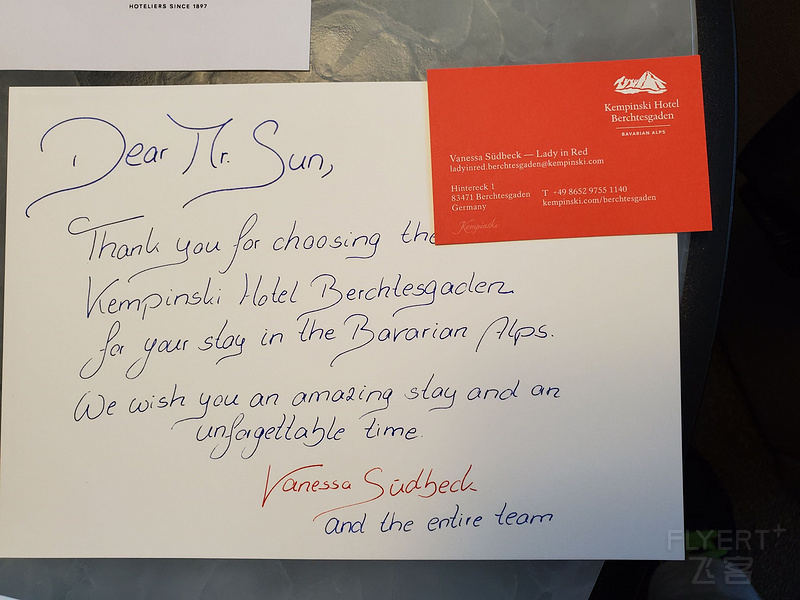 HOTELIERS SINCE 1897
Dear Mr. Sun,
Thank you for choosing the
Kempinski Hotel Berchtesgaden
for your stay in the Bavarian Alps.
We wish you an amazing stay and an
unforgettable time.
Vanessa Südbeck
and the entire team
Kempinski Hotel
Berchtesgaden
BAVARIAN ALPS
Vanessa Südbeck — Lady in Red
ladyinred.berchtesgaden@kempinski.com
Hintereck 1
83471 Berchtesgaden
Germany
T +49 8652 9755 1140
kempinski.com/berchtesgaden
Kempinski
FLYERT+
飞客